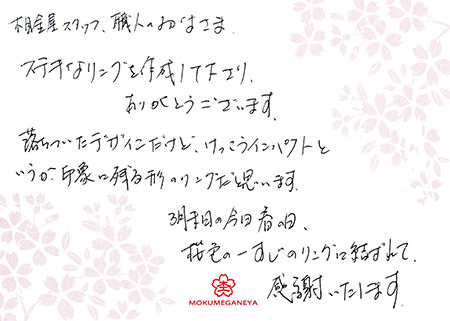 杢目金屋スタッフ、職人のみなさま
ステキなリングを作成して下さり、
ありがとうございます。
落ちついたデザインだけど、けっこうインパクトと
いうか、印象に残る形のリングだと思います。
3月末日の今日 春の日、
桜色の一すじのリングに結ばれて、
感謝いたします。
MOKUMEGANEYA